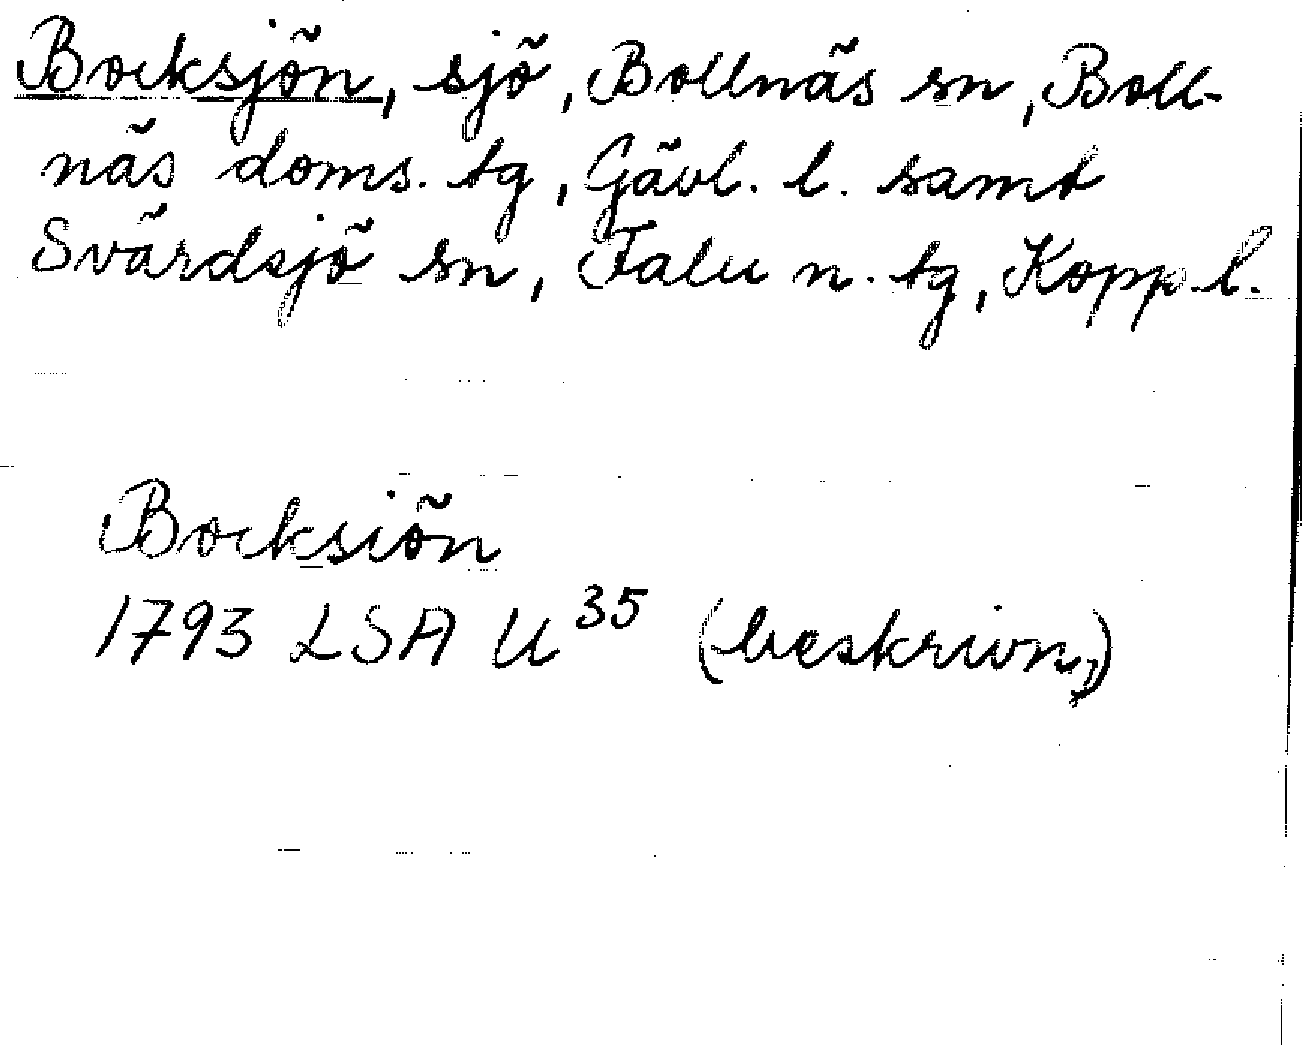 Bocksjön, sjö, Bollnäs sn, Boll-
näs doms. tg, Gävl. l. samt
Svärdsjö sn, Falu n. tg, Kopp. l.
Bocksiön
1793 LSA U³⁵ (beskrivn.)